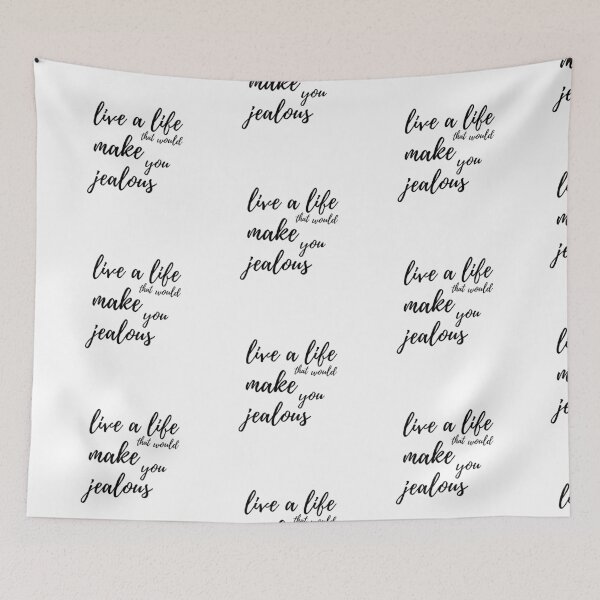 live a life
that would
make you
jealous
live a life
that would
make you
jealous
live a life
that would
make you
jealous
make you
jealous
live a life
that would
make you
jealous
live a life
that would
make you
jealous
live a life
that would
live a life
that would
make you
jealous
live a life
that would
make you
jealous
live a life
that would
make you
jealous